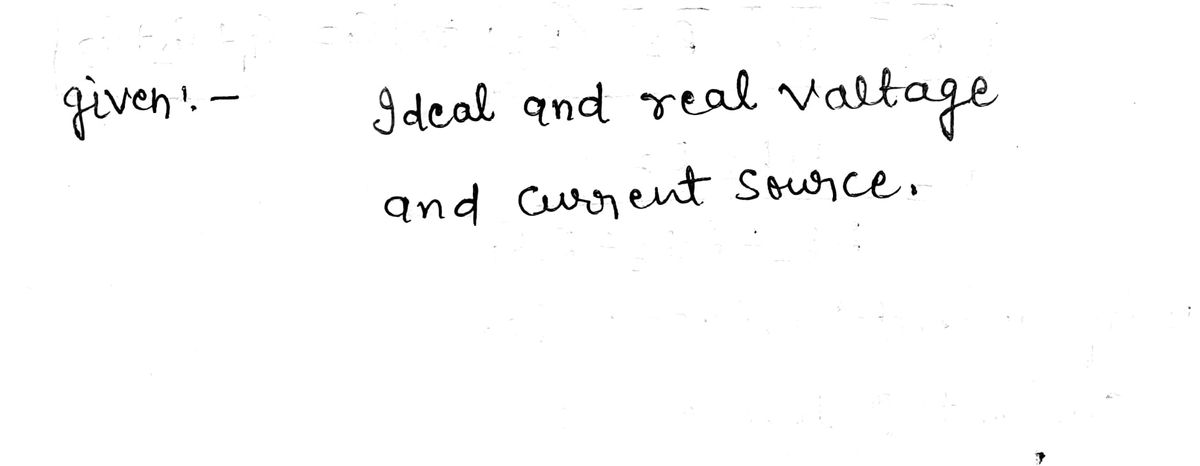 given:- Ideal and real valtage
and current source.